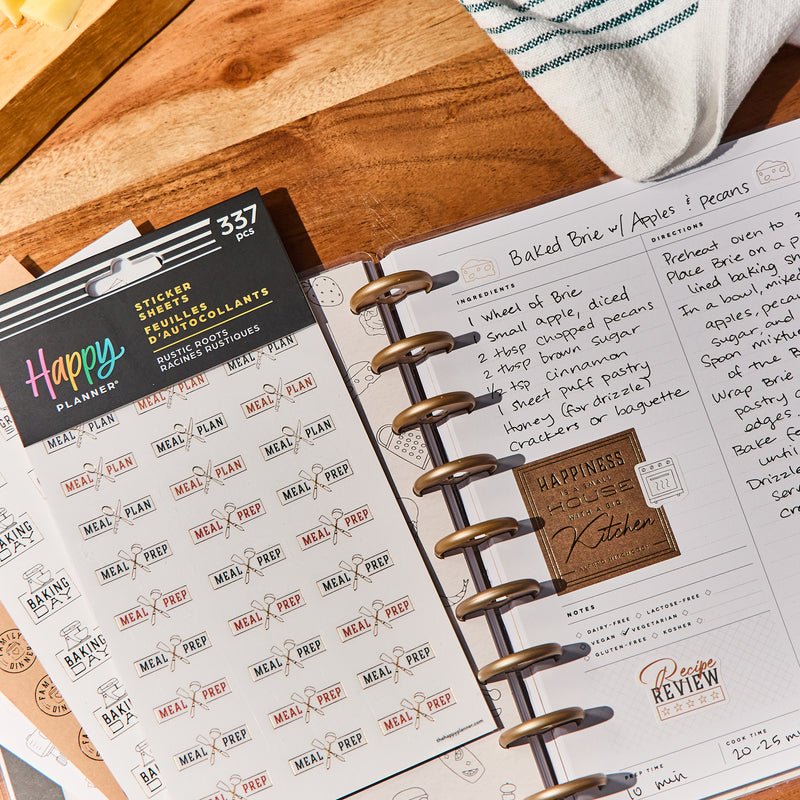 337
pcs
STICKER
SHEETS
FEUILLES
D'AUTOCOLLANTS
RUSTIC ROOTS
RACINES RUSTIQUES
Happy
PLANNER®
MEAL PLAN
MEAL PLAN
MEAL PLAN
MEAL PLAN
MEAL PLAN
MEAL PLAN
MEAL PLAN
MEAL PLAN
MEAL PLAN
MEAL PREP
MEAL PLAN
MEAL PREP
MEAL PREP
MEAL PREP
MEAL PREP
MEAL PREP
MEAL PREP
MEAL PREP
MEAL PREP
MEAL PREP
MEAL PREP
MEAL PREP
MEAL PREP
MEAL PREP
MEAL PREP
MEAL PREP
MEAL PREP
MEAL PREP
thehappyplanner.com
BAKING
DAY
BAKING
DAY
BAKING
DAY
BAKING
FAMILY
DINNER
FAMILY
Baked Brie w/ Apples & Pecans
INGREDIENTS
1 Wheel of Brie
1 small apple, diced
2 tbsp chopped pecans
2 tbsp brown sugar
1/2 tsp cinnamon
1 sheet puff pastry
Honey (for drizzle)
crackers or baguette
HAPPINESS
IS A SMALL
HOUSE
WITH A BIG
Kitchen
NOTES
DAIRY-FREE LACTOSE-FREE
VEGAN VEGETARIAN
GLUTEN-FREE KOSHER
Recipe
REVIEW
PREP TIME
10 min
COOK TIME
20-25
DIRECTIONS
Preheat oven to
Place Brie on a
lined baking
In a bowl, mixed
apples,
sugar, and
Spoon
of the
Wrap Brie
pastry
edges
Bake
until
Drizzle